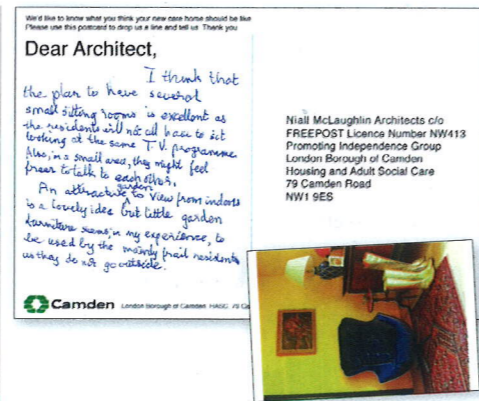 We'd like to know what you think your new care home should be like
Please use this postcard to drop us a line and tell us. Thank you
Dear Architect,
I think that
the plan to have several
small sitting rooms is excellent as
the residents will not all have to sit
looking at the same T.V. programme
Also, in a small area, they might feel
freer to talk to each other.
An attractive garden to view from indoors
is a lovely idea but little garden
furniture seems, in my experience, to
be used by the mainly frail residents
as they do not go outside.
Camden London Borough of Camden HASC 79
Niall McLaughlin Architects c/o
FREEPOST Licence Number NW413
Promoting Independence Group
London Borough of Camden
Housing and Adult Social Care
79 Camden Road
NW1 9ES